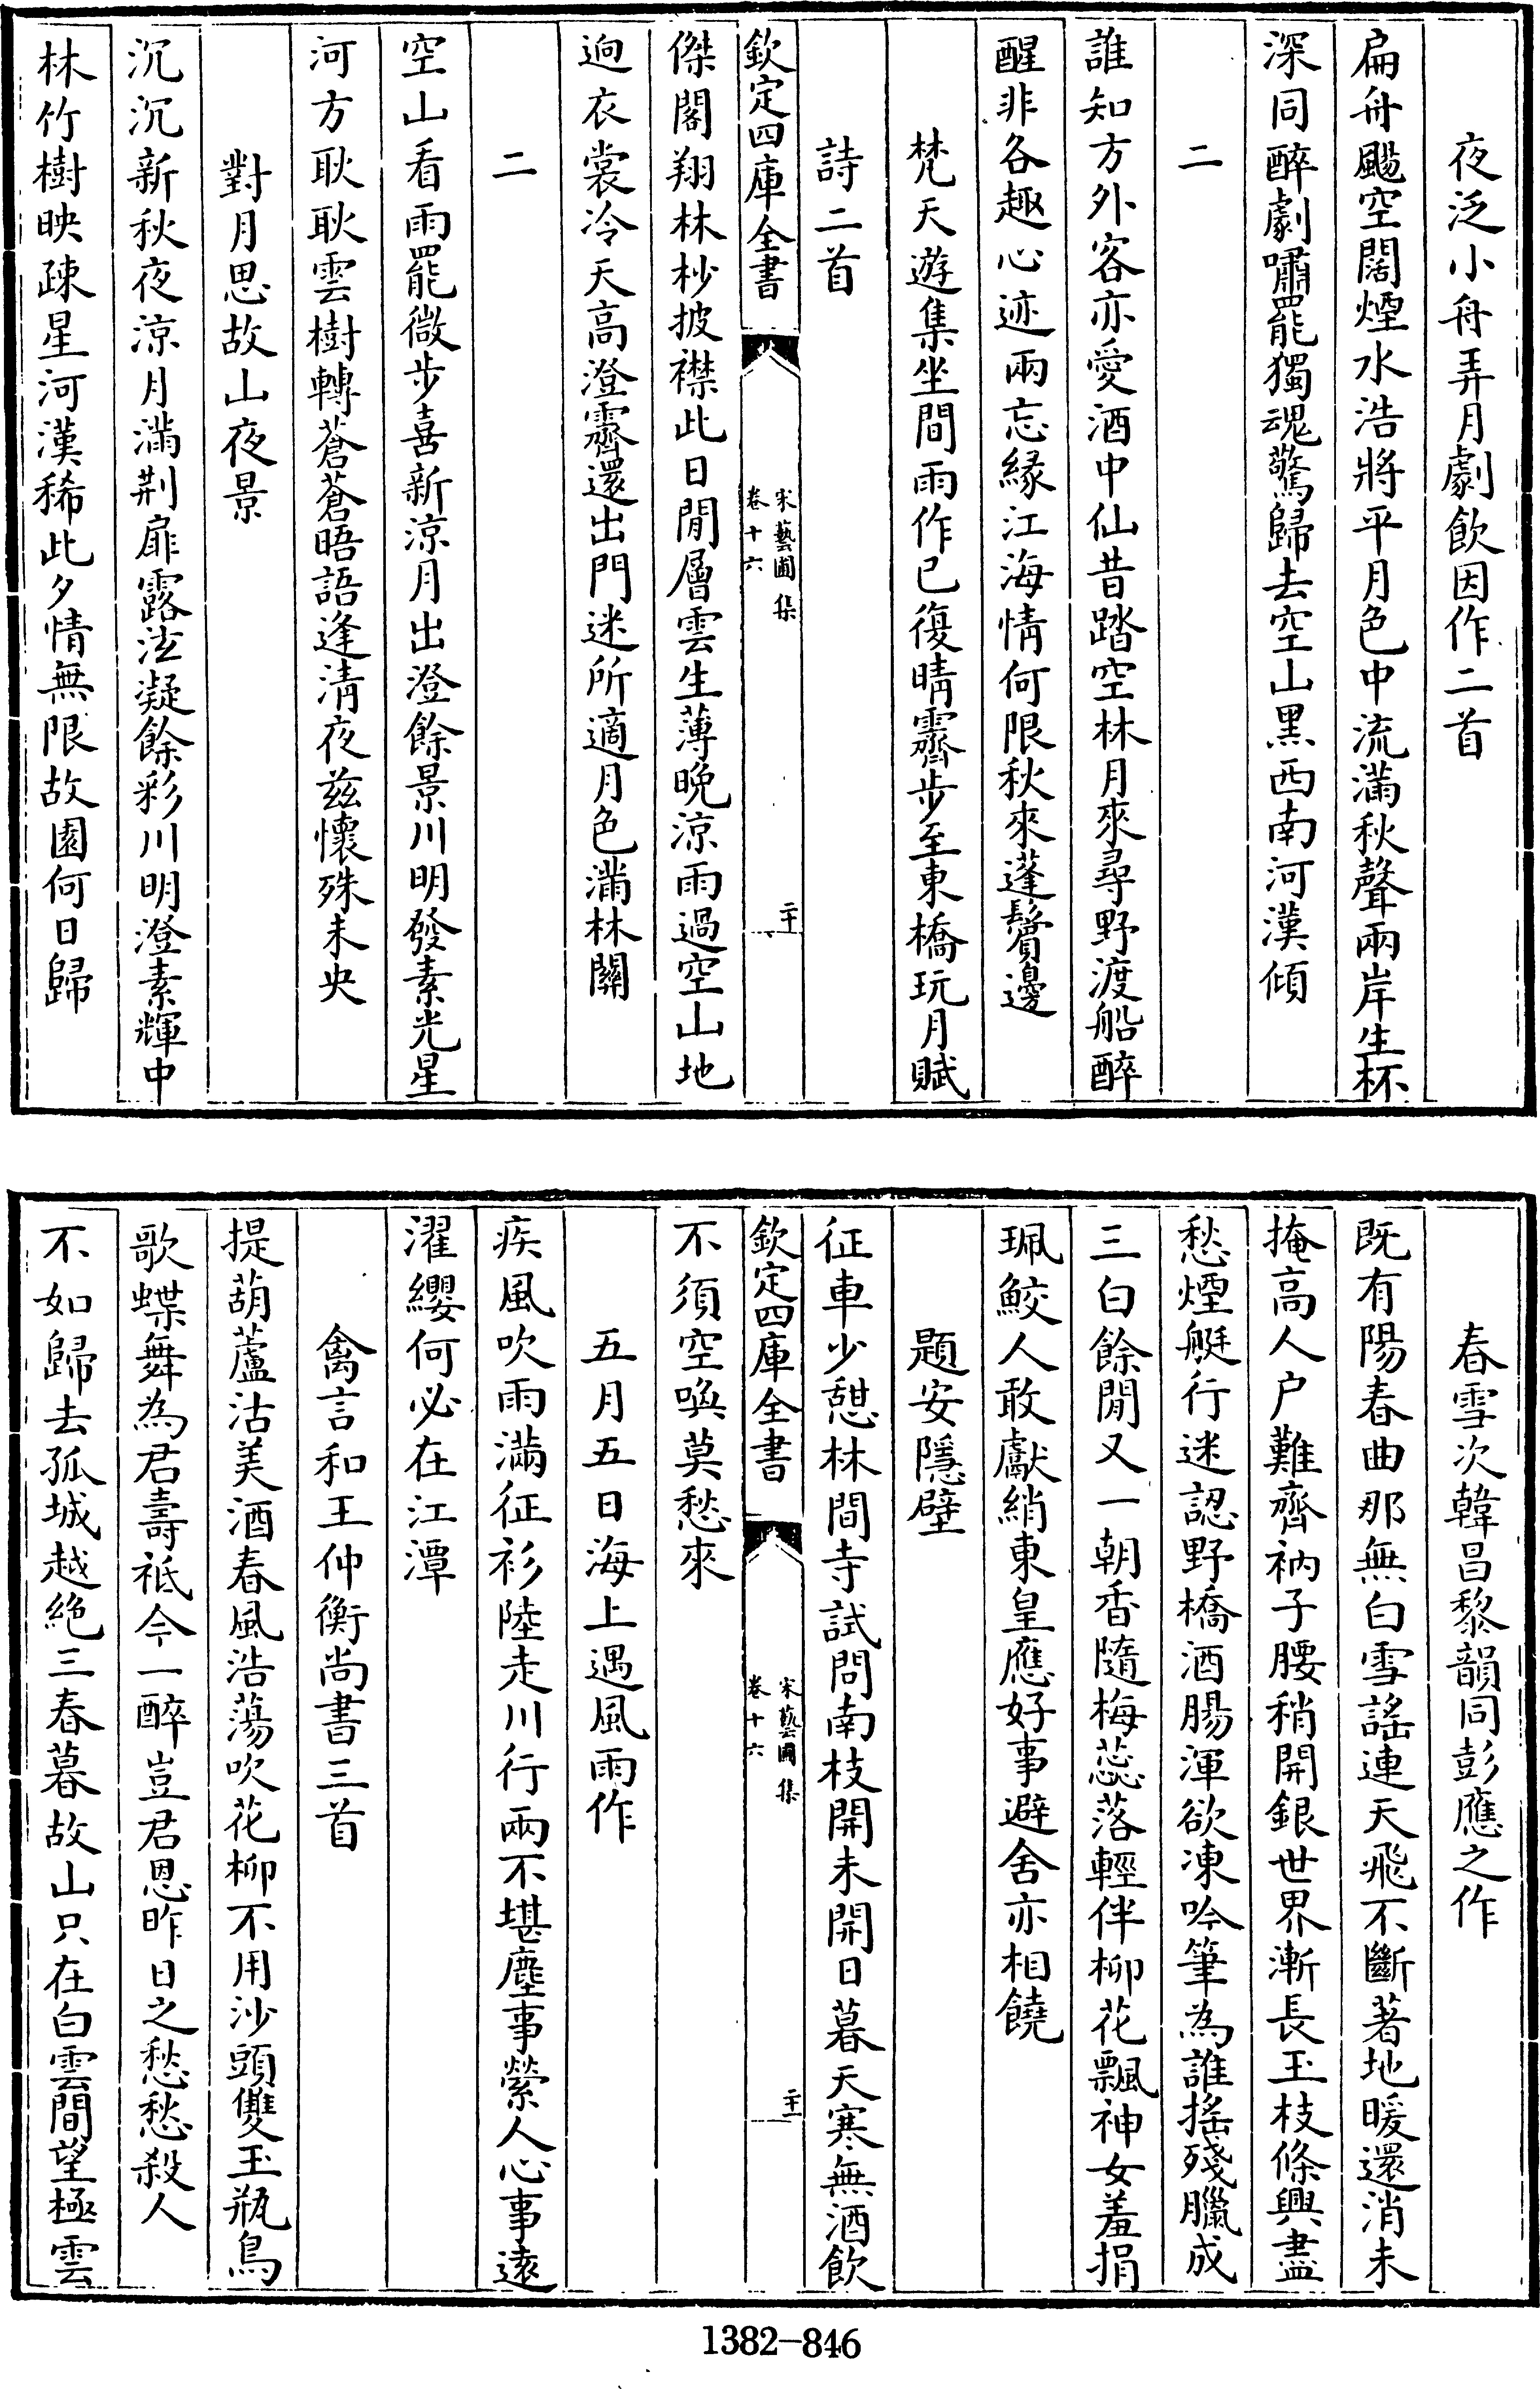 夜泛小舟弄月劇飲因作二首
扁舟颺空闊煙水浩將平月色中流滿秋聲兩岸生杯
深同醉劇嘯罷獨魂驚歸去空山黑西南河漢傾
二
誰知方外客亦愛酒中仙昔踏空林月來尋野渡船醉
醒非各趣心迹兩忘緣江海情何限秋來蓬鬢邊
梵天遊集坐間雨作已復晴霽步至東橋玩月賦
詩二首
欽定四庫全書
宋藝圃集
卷十六
二十
傑閣翔林杪披襟此日閒層雲生薄晚涼雨過空山地
逈衣裳冷天高澄霽還出門迷所適月色滿林關
二
空山看雨罷微步喜新涼月出澄餘景川明發素光星
河方耿耿雲樹轉蒼蒼晤語逢清夜兹懷殊未央
對月思故山夜景
沉沉新秋夜涼月滿荆扉露泫凝餘彩川明澄素輝中
林竹樹映疎星河漢稀此夕情無限故園何日歸
春雪次韓昌黎韻同彭應之作
既有陽春曲那無白雪謠連天飛不斷著地暖還消未
掩高人户難齊衲子腰稍開銀世界漸長玉枝條興盡
愁煙艇行迷認野橋酒腸渾欲凍吟筆為誰搖殘臘成
三白餘閒又一朝香隨梅蕊落輕伴柳花飄神女羞捐
珮鮫人敢獻綃東皇應好事避舍亦相饒
題安隱壁
征車少憩林間寺試問南枝開未開日暮天寒無酒飲
欽定四庫全書
宋藝圃集
卷十六
二十一
不須空喚莫愁來
五月五日海上遇風雨作
疾風吹雨滿征衫陸走川行兩不堪塵事縈人心事遠
濯纓何必在江潭
禽言和王仲衡尚書三首
提葫蘆沽美酒春風浩蕩吹花柳不用沙頭雙玉瓶鳥
歌蝶舞為君壽祗今一醉豈君恩昨日之愁愁殺人
不如歸去孤城越絶三春暮故山只在白雲間望極雲
1382-846